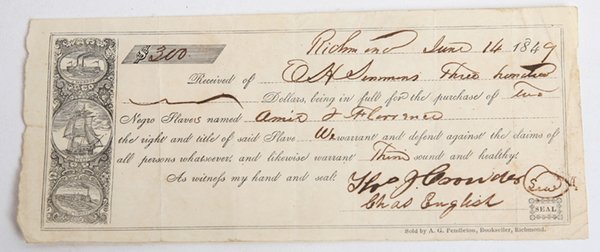 $300
Richmond June 14 1849
Received of O H Simmons Three hundred
Dollars, being in full for the purchase of Two
Negro Slaves named Amie & Florence
the right and title of said Slave We warrant and defend against the claims of
all persons whatsoever, and likewise warrant Them sound and healthy.
As witness my hand and seal.
Thos J. Crowder Seal
SEAL
Chas English
Sold by A. G. Pendleton, Bookseller, Richmond.